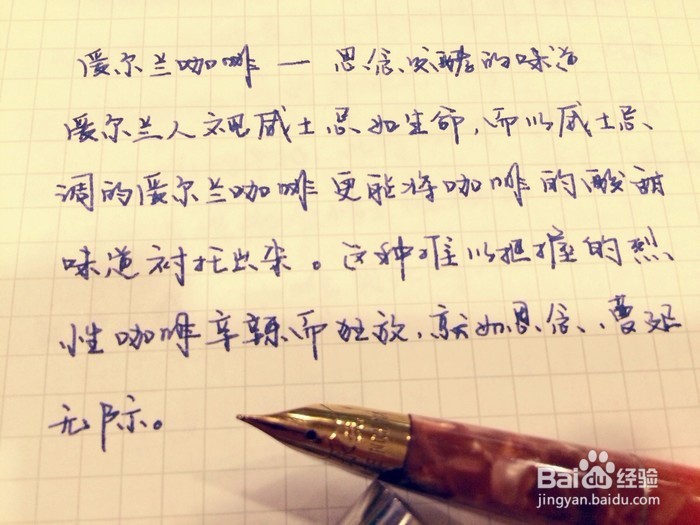 爱尔兰咖啡 — 思念发酵的味道
爱尔兰人视威士忌如生命,而以威士忌
调的爱尔兰咖啡更能将咖啡的酸甜
味道衬托出来。这种难以抵挡的烈
性咖啡辛辣而狂放,就如思念、蔓延
无际。
Baidu 经验
jingyan.baidu.com